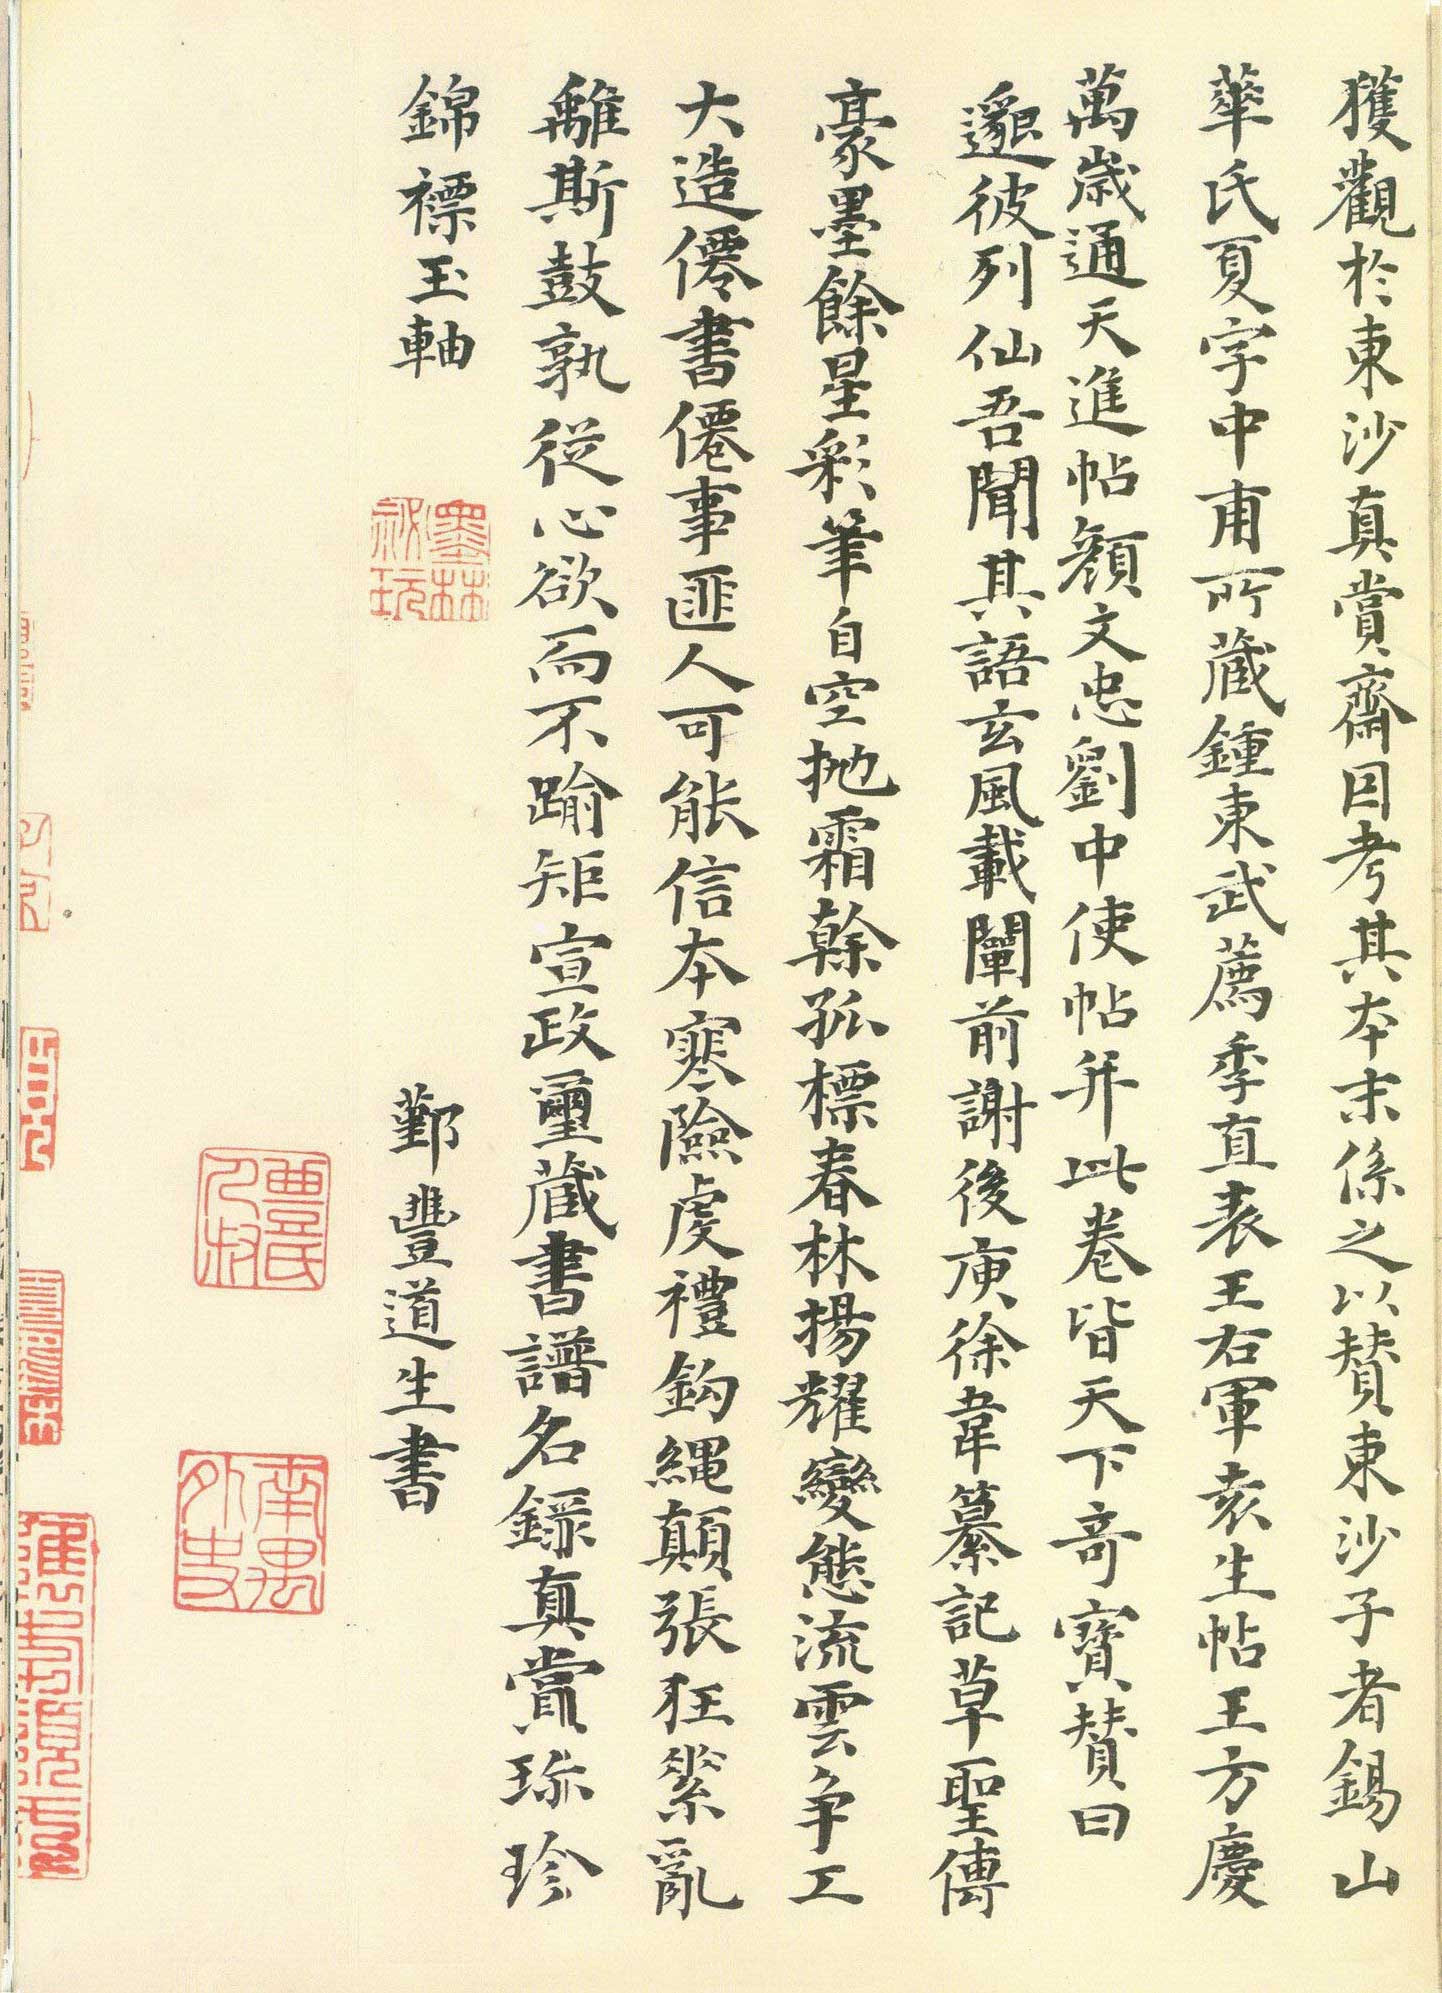 獲觀於東沙真賞齋因考其本末係之以贊東沙子者錫山
華氏夏字中甫所藏鍾東武薦季直表王右軍袁生帖王方慶
萬歲通天進帖顏文忠劉中使帖并此卷皆天下奇寶贊曰
邈彼列仙吾聞其語玄風載闡前謝後庾徐韋纂記草聖傳
豪墨餘星彩筆自空拋霜榦孤標春林揚耀變態流雲爭工
大造僊書僊事匪人可能信本寒險虔禮鈎繩顛張狂縈亂
離斯鼓孰從心欲而不踰矩宣政璽藏書譜名録真賞珎珍
錦褾玉軸
鄞豐道生書
墨林祕玩
豐氏人叔
南禺外史